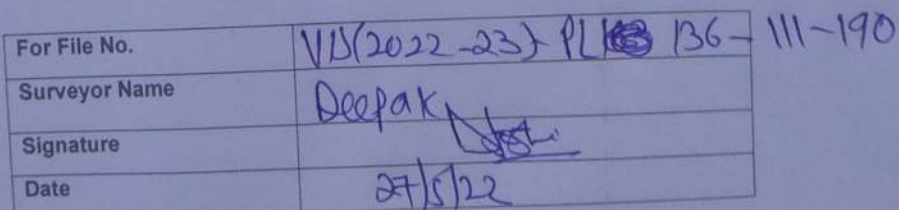 For File No. VIS(2022-23)-PL 136-111-190
Surveyor Name Deepak
Signature
Date 27/5/22